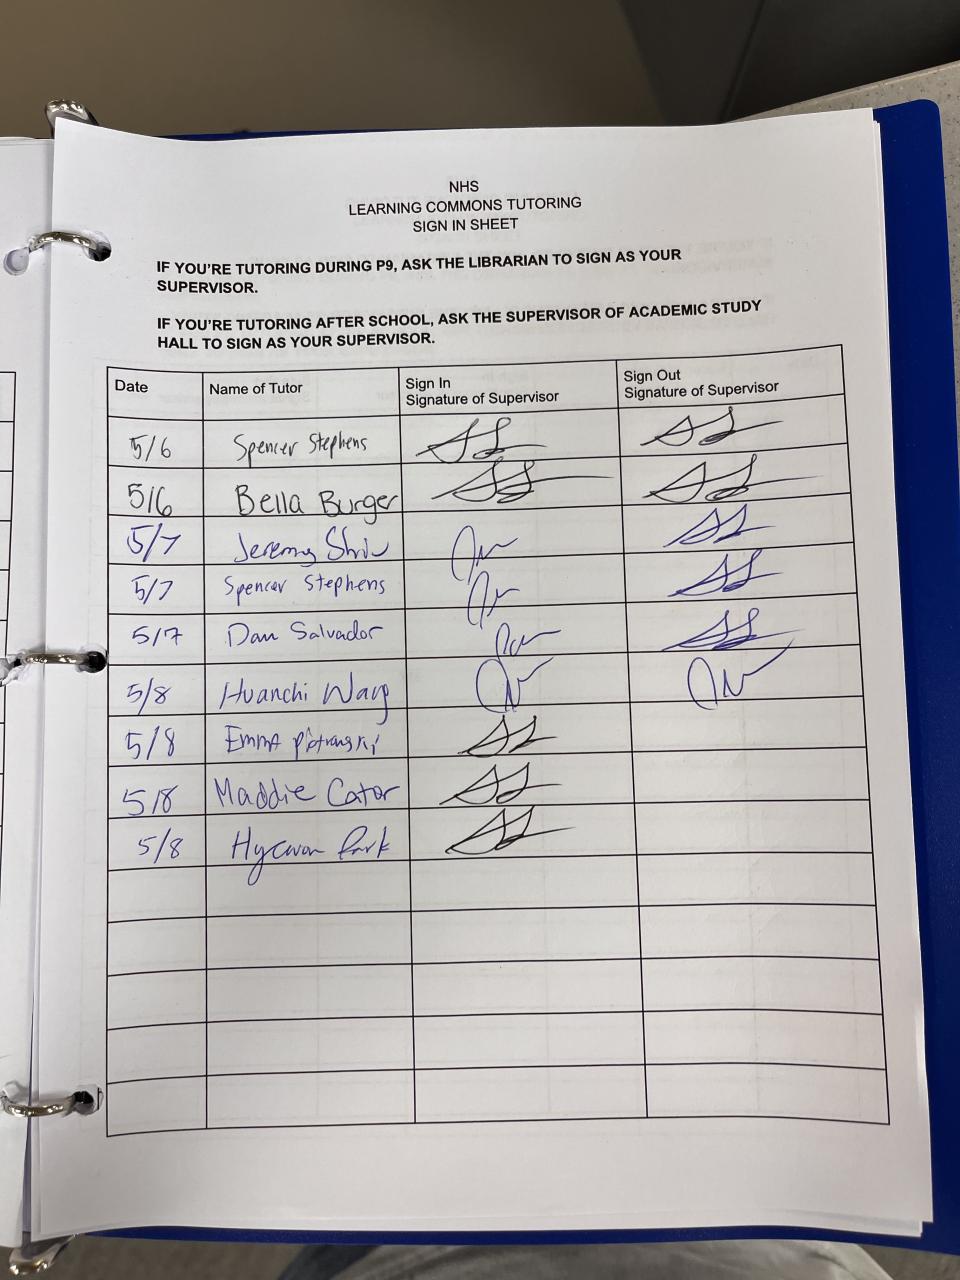 NHS
LEARNING COMMONS TUTORING
SIGN IN SHEET
IF YOU'RE TUTORING DURING P9, ASK THE LIBRARIAN TO SIGN AS YOUR
SUPERVISOR.
IF YOU'RE TUTORING AFTER SCHOOL, ASK THE SUPERVISOR OF ACADEMIC STUDY
HALL TO SIGN AS YOUR SUPERVISOR.
Date Name of Tutor Sign In Sign Out
Signature of Supervisor Signature of Supervisor
5/6 Spencer Stephens
5/6 Bella Burger
5/7 Jeremy
5/7 Spencer Stephens
5/7 Dan Salvador
5/8 Huanchi Wang
5/8 Emma
5/8 Maddie Cator
5/8 Park